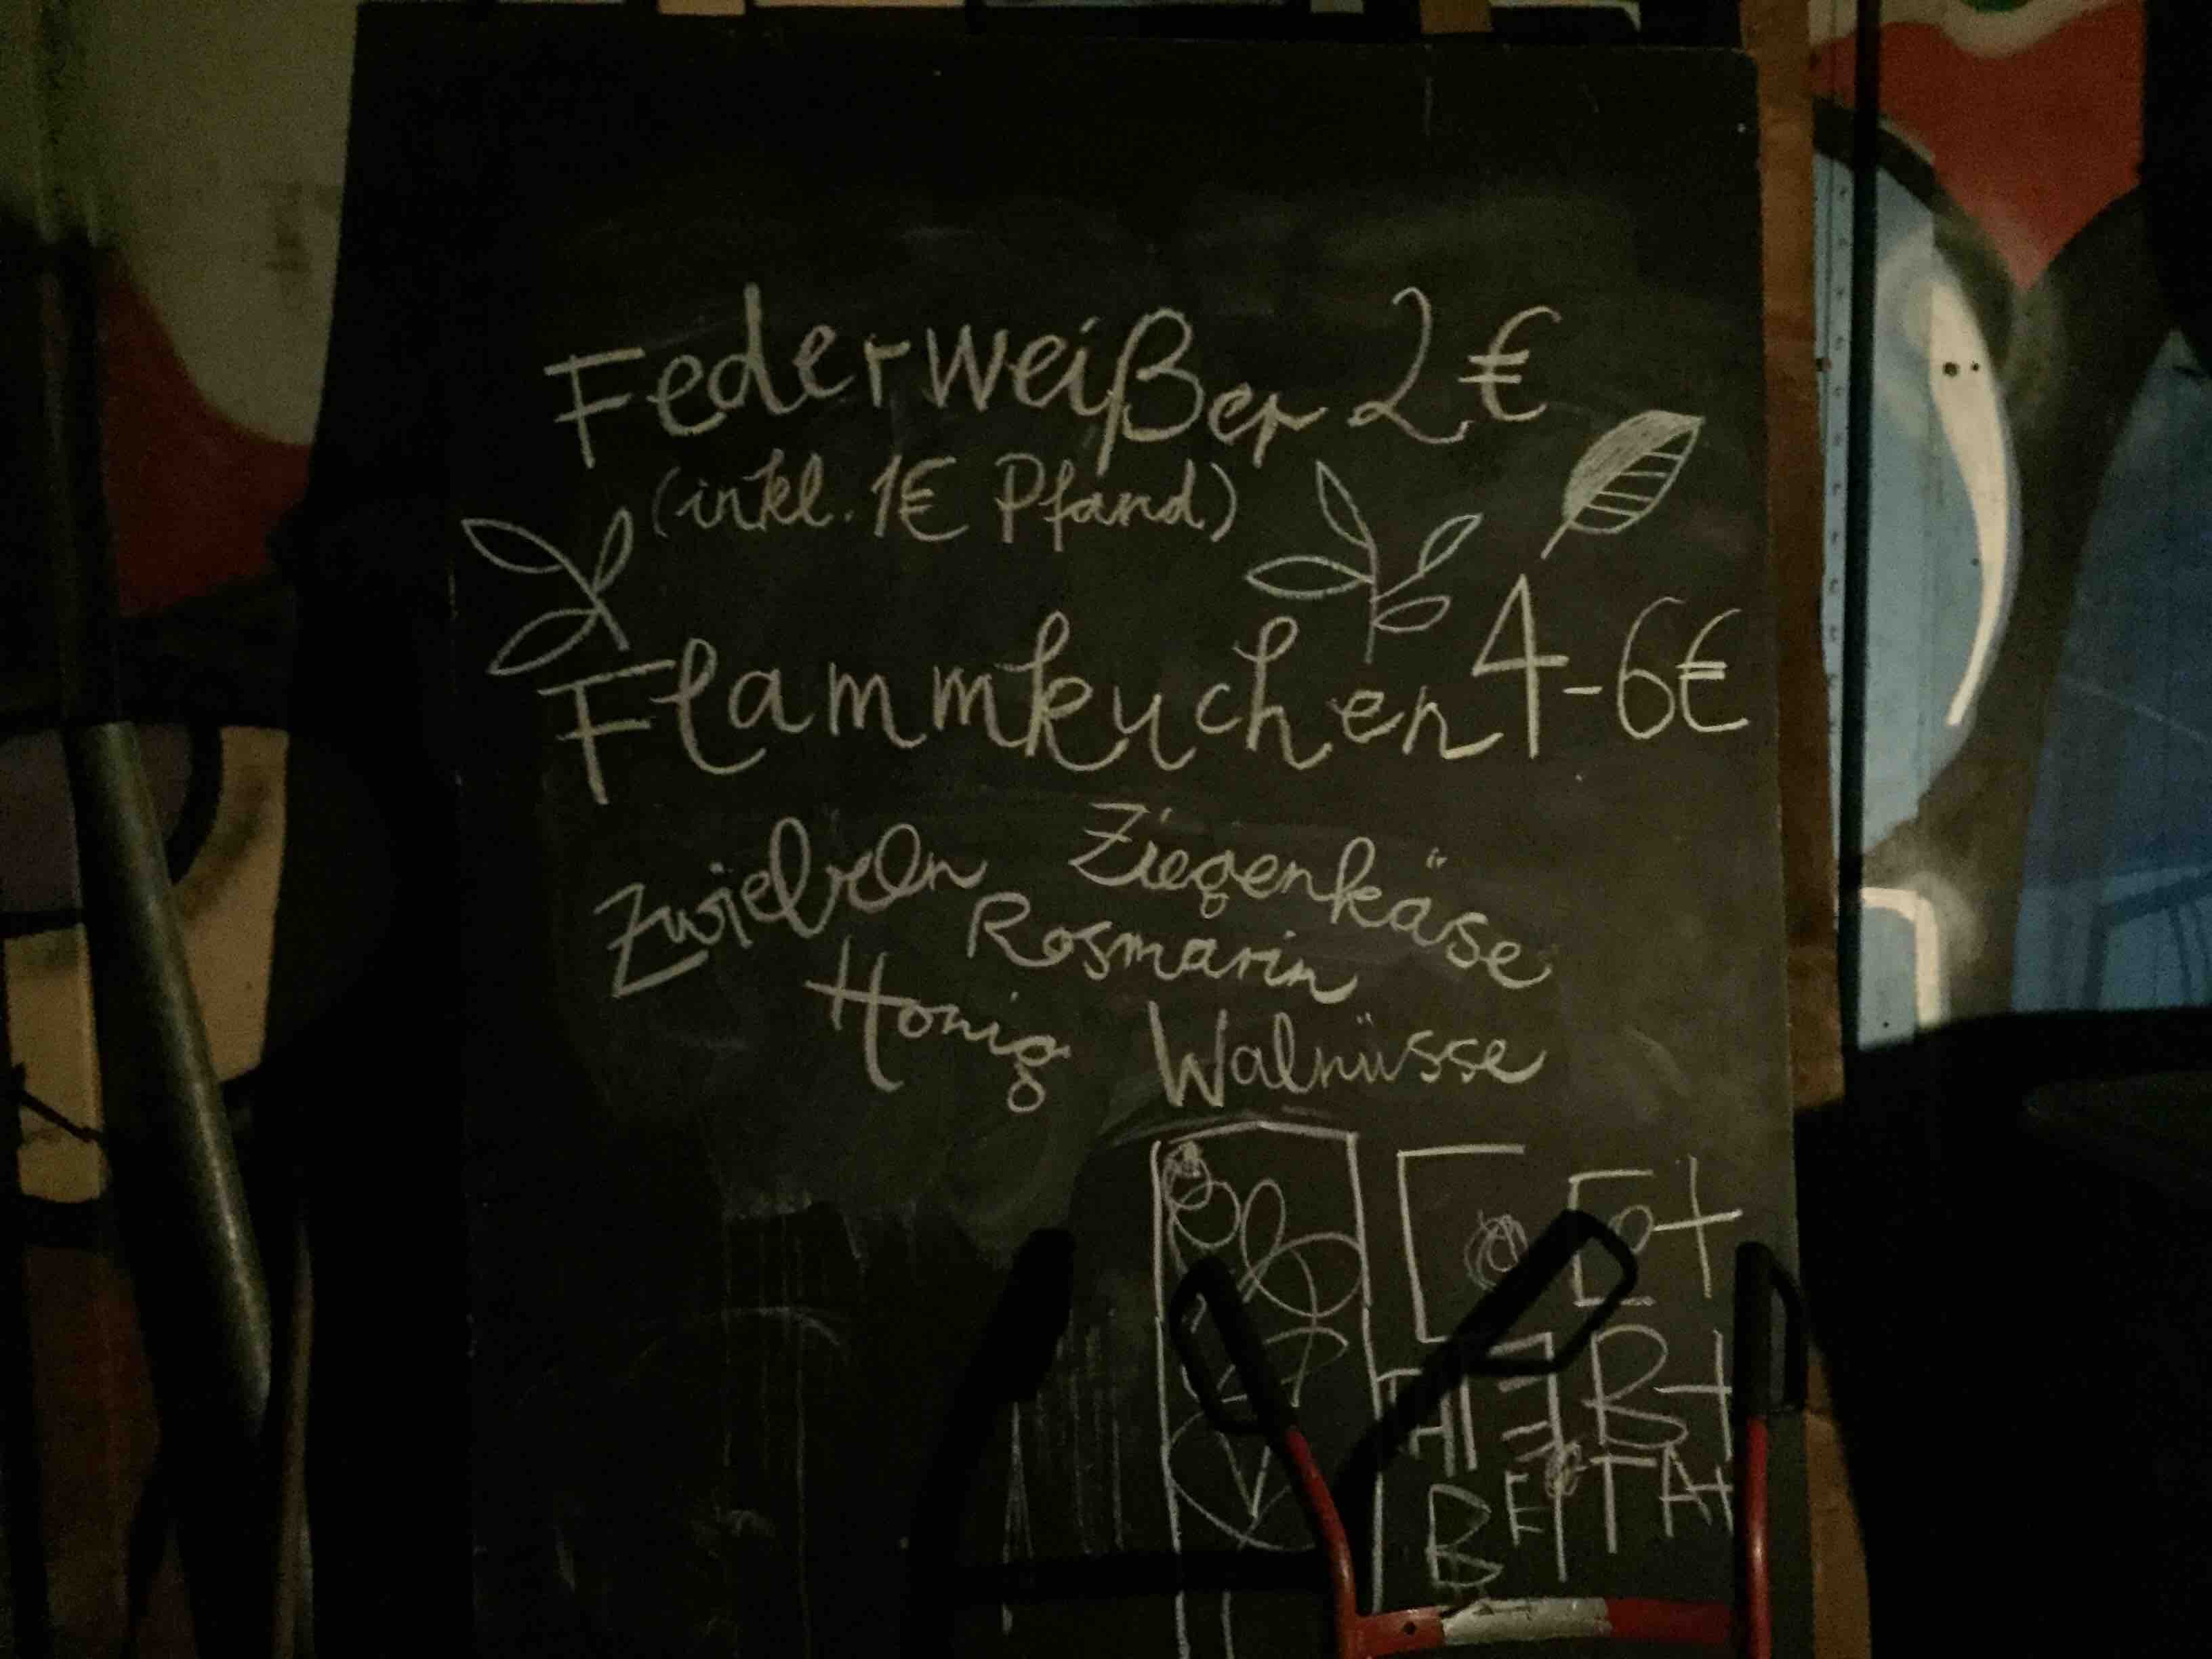 Federweißer 2€
(inkl. 1€ Pfand)
Flammkuchen 4-6€
Zwiebeln Ziegenkäse
Rosmarin
Honig Walnüsse